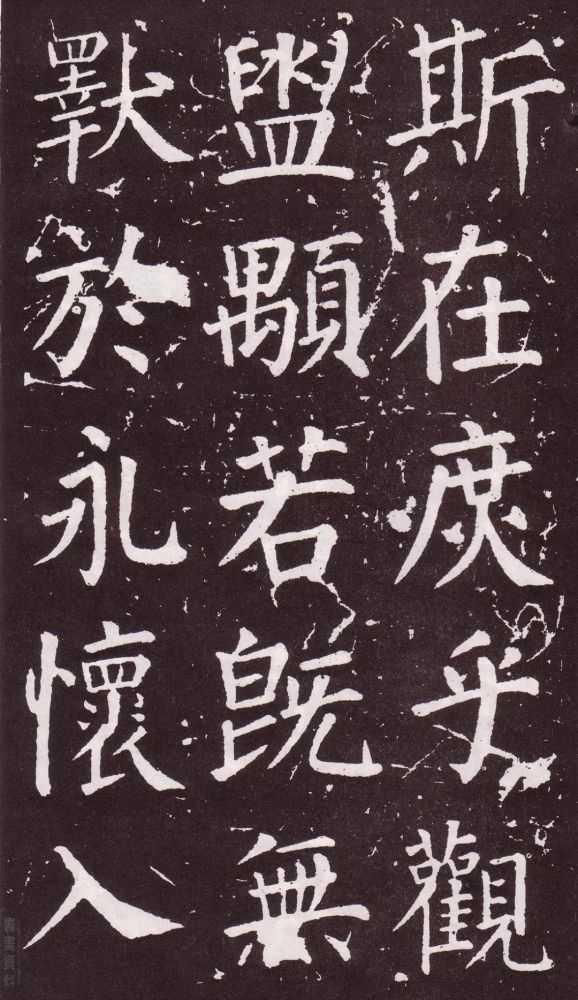 斯在庶乎觀
盥顒若既無
斁於永懷入
書畫資料